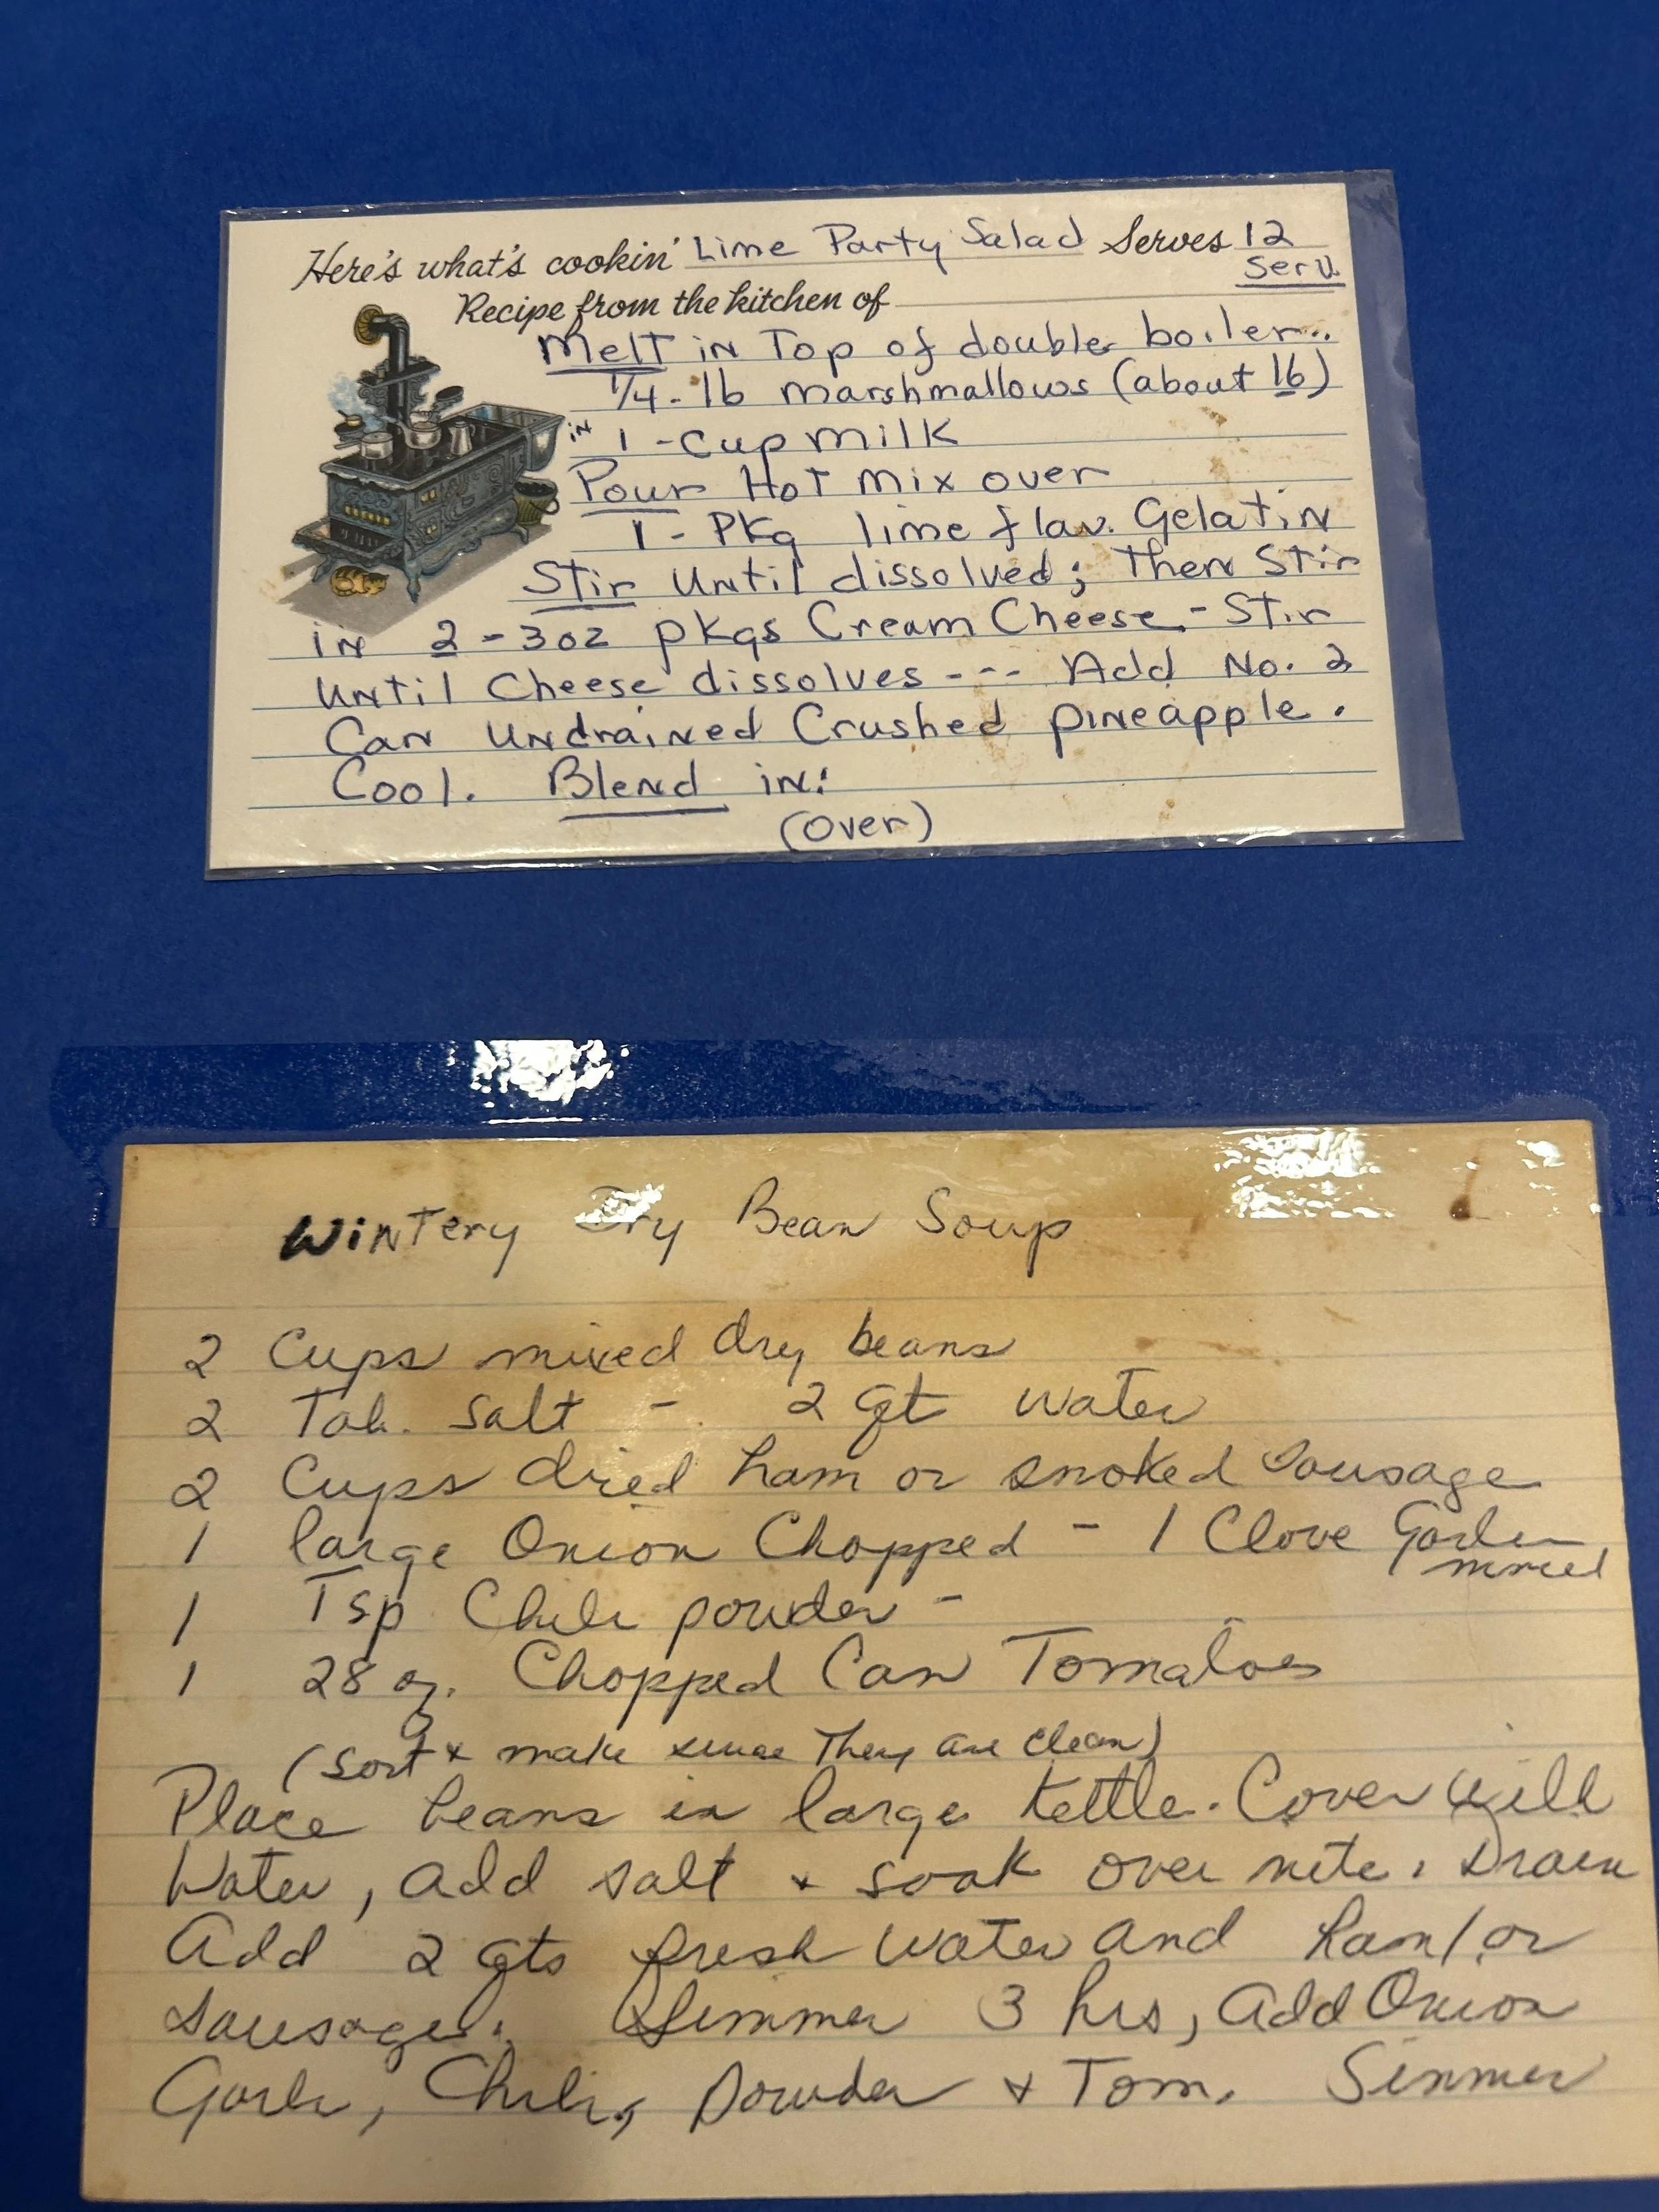 Here's what's cookin' Lime Party Salad Serves 12
Serv.
Recipe from the kitchen of
Melt in Top of double boiler..
1/4-lb marshmallows (about 16)
in 1-cup milk
Pour Hot mix over
1-Pkg lime flav. Gelatin
Stir until dissolved; Then Stir
in 2-3oz pkgs Cream Cheese-Stir
until Cheese dissolves --- Add No. 2
Can undrained Crushed pineapple.
Cool. Blend in:
(over)
Wintery Dry Bean Soup
2 Cups mixed dry beans
2 Tab. salt - 2 qt water
2 Cups dried ham or smoked sausage
1 large Onion Chopped - 1 Clove Garlic
minced
1 Tsp Chili powder -
1 28 oz. Chopped Can Tomatoes
(sort & make sure They are clean)
Place beans in large kettle. Cover with
Water, add salt & soak over nite. Drain
Add 2 qts fresh water and ham/or
sausage. Simmer 3 hrs, add Onion
Garlic, Chili, Powder & Tom. Simmer